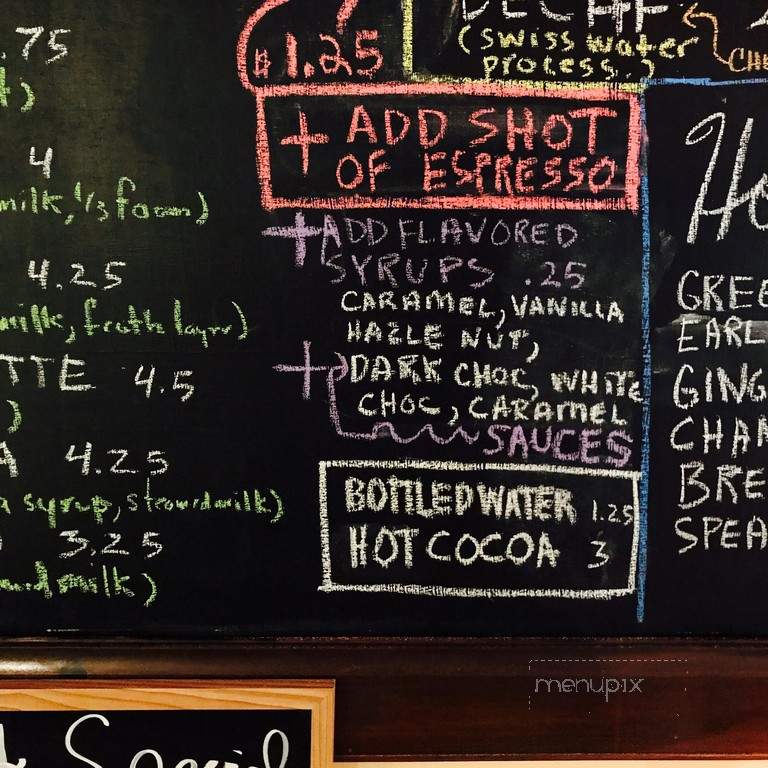 .75
4
milk, 1/3 foam)
4.25
milk, froth layer)
TTE 4.5
)
A 4.25
a syrup, steamed milk)
3.25
milk)
$1.25
+ ADD SHOT
OF ESPRESSO
+ ADD FLAVORED
SYRUPS .25
CARAMEL, VANILLA
HAZLE NUT,
+ DARK CHOC, WHITE
CHOC, CARAMEL
SAUCES
BOTTLED WATER 1.25
HOT COCOA 3
DECAF
(SWISS WATER
PROCESS.)
CH
Ho
GREE
EARL
GING
CHAM
BRE
SPEA
Special
menupix